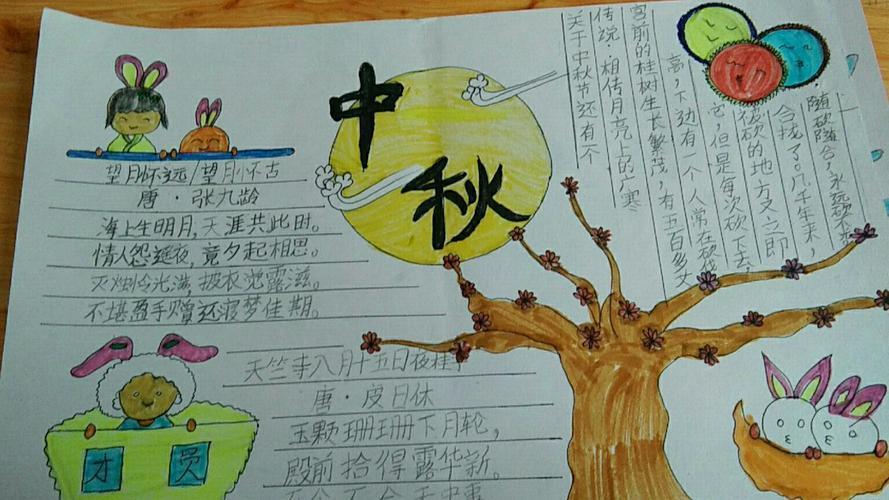 中
秋
望月怀远/望月怀古
唐·张九龄
海上生明月，天涯共此时。
情人怨遥夜，竟夕起相思。
灭烛怜光满，披衣觉露滋。
不堪盈手赠还寝梦佳期。
天竺寺八月十五日夜桂子
唐·皮日休
玉颗珊珊下月轮，
殿前拾得露华新。
才 员
关于中秋节还有个
传说：相传月亮上的广寒
宫前的桂树生长繁茂，有五百多丈
高，下边有一个人常在砍
它，但是每次砍下去，
被砍的地方又立即
合拢了。几千年来，
随砍随合，永远砍不